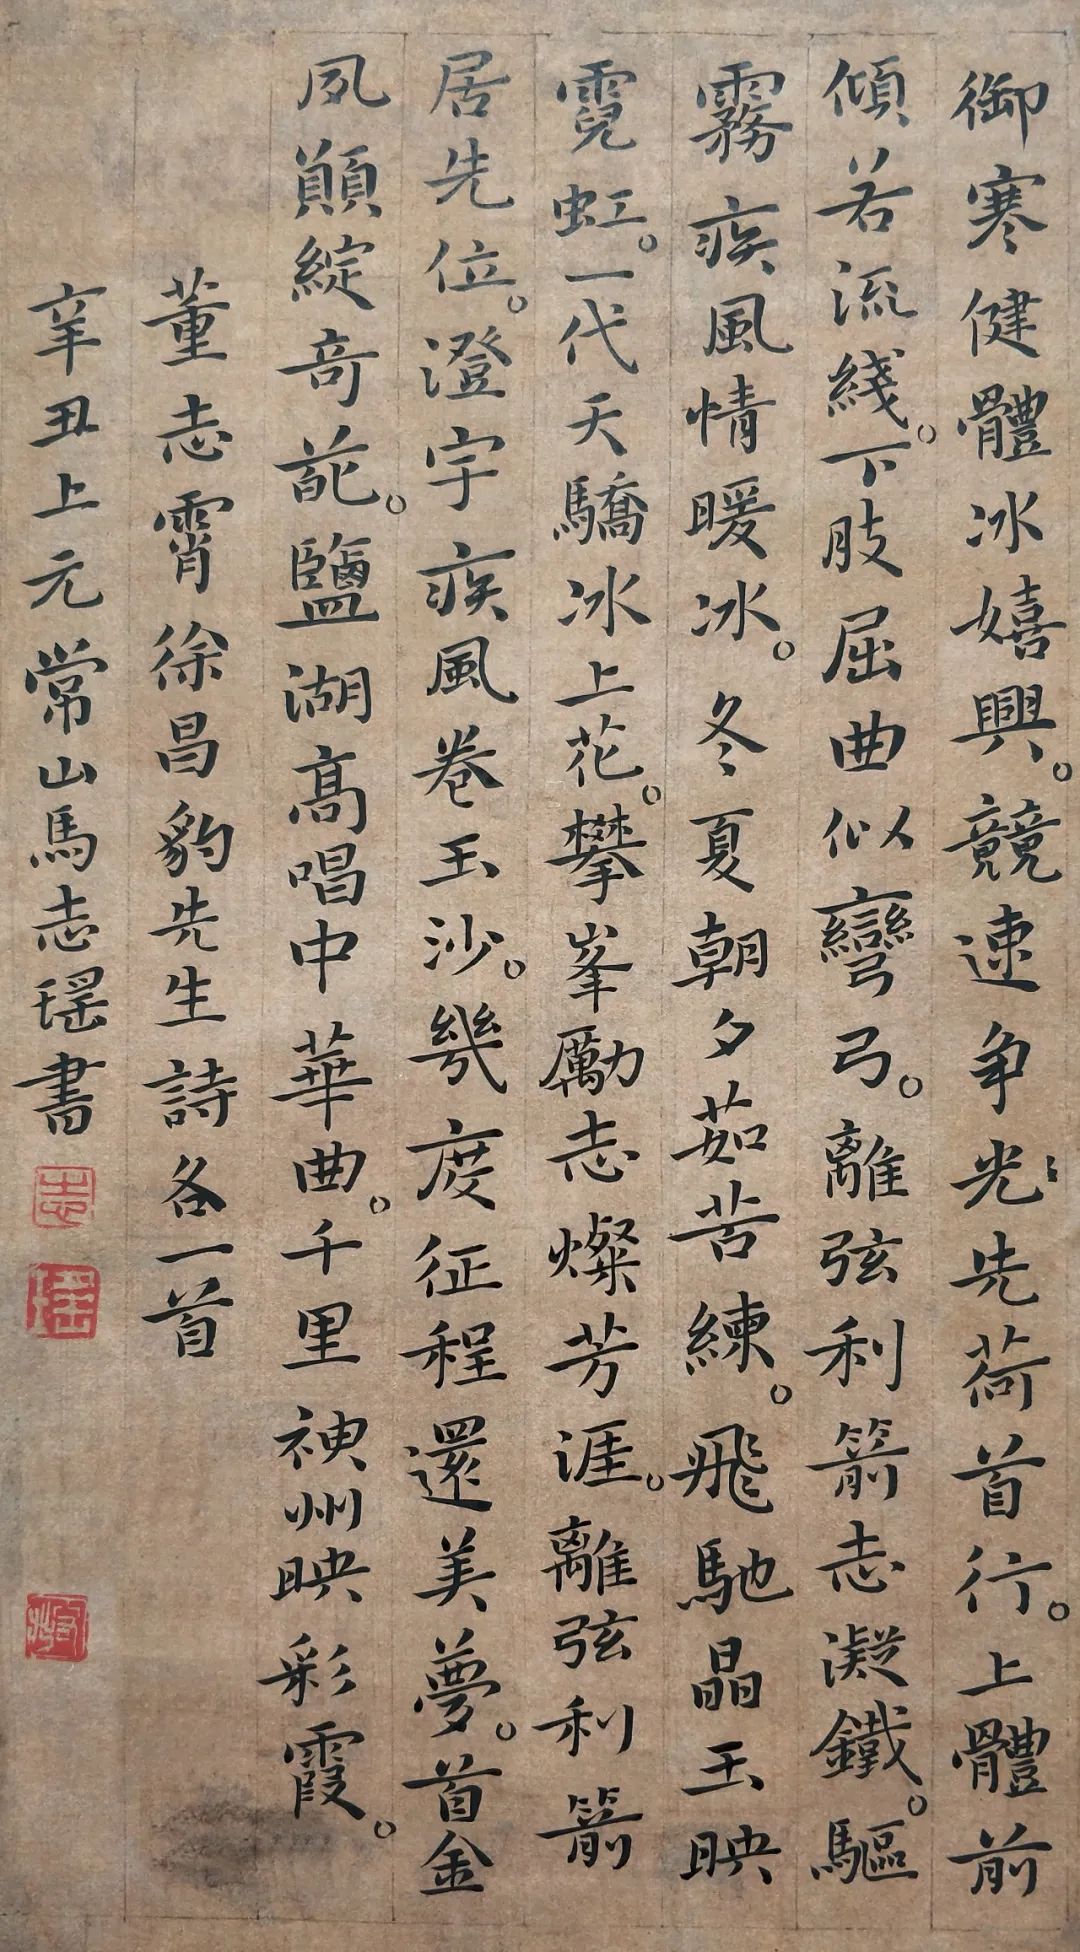 御寒健體冰嬉興。競速争光先荷首行。上體前
傾若流綫。下肢屈曲似彎弓。離弦利箭志凝鐵。驅
霧疾風情暖冰。冬夏朝夕茹苦練。飛馳晶玉映
霓虹。一代天驕冰上花。攀峯勵志燦芳涯。離弦利箭
居先位。澄宇疾風卷玉沙。幾度征程還美夢。首金
夙願綻奇葩。鹽湖高唱中華曲。千里神州映彩霞。
董志霄徐昌豹先生詩各一首
辛丑上元常山馬志瑶書